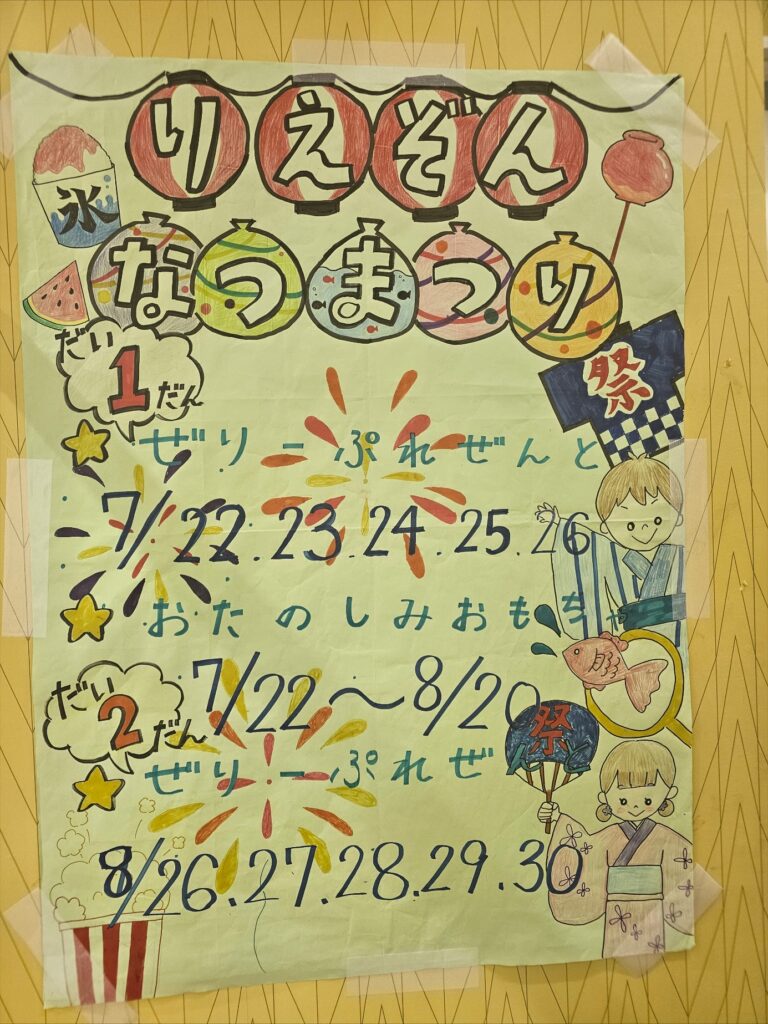 りえぞん
氷
なつまつり
だい1だん
祭
ぜりーぷれぜんと
7/22.23.24.25.26
おたのしみおもちゃ
7/22〜8/20
だい2だん
祭
ぜりーぷれぜんと
8/26.27.28.29.30